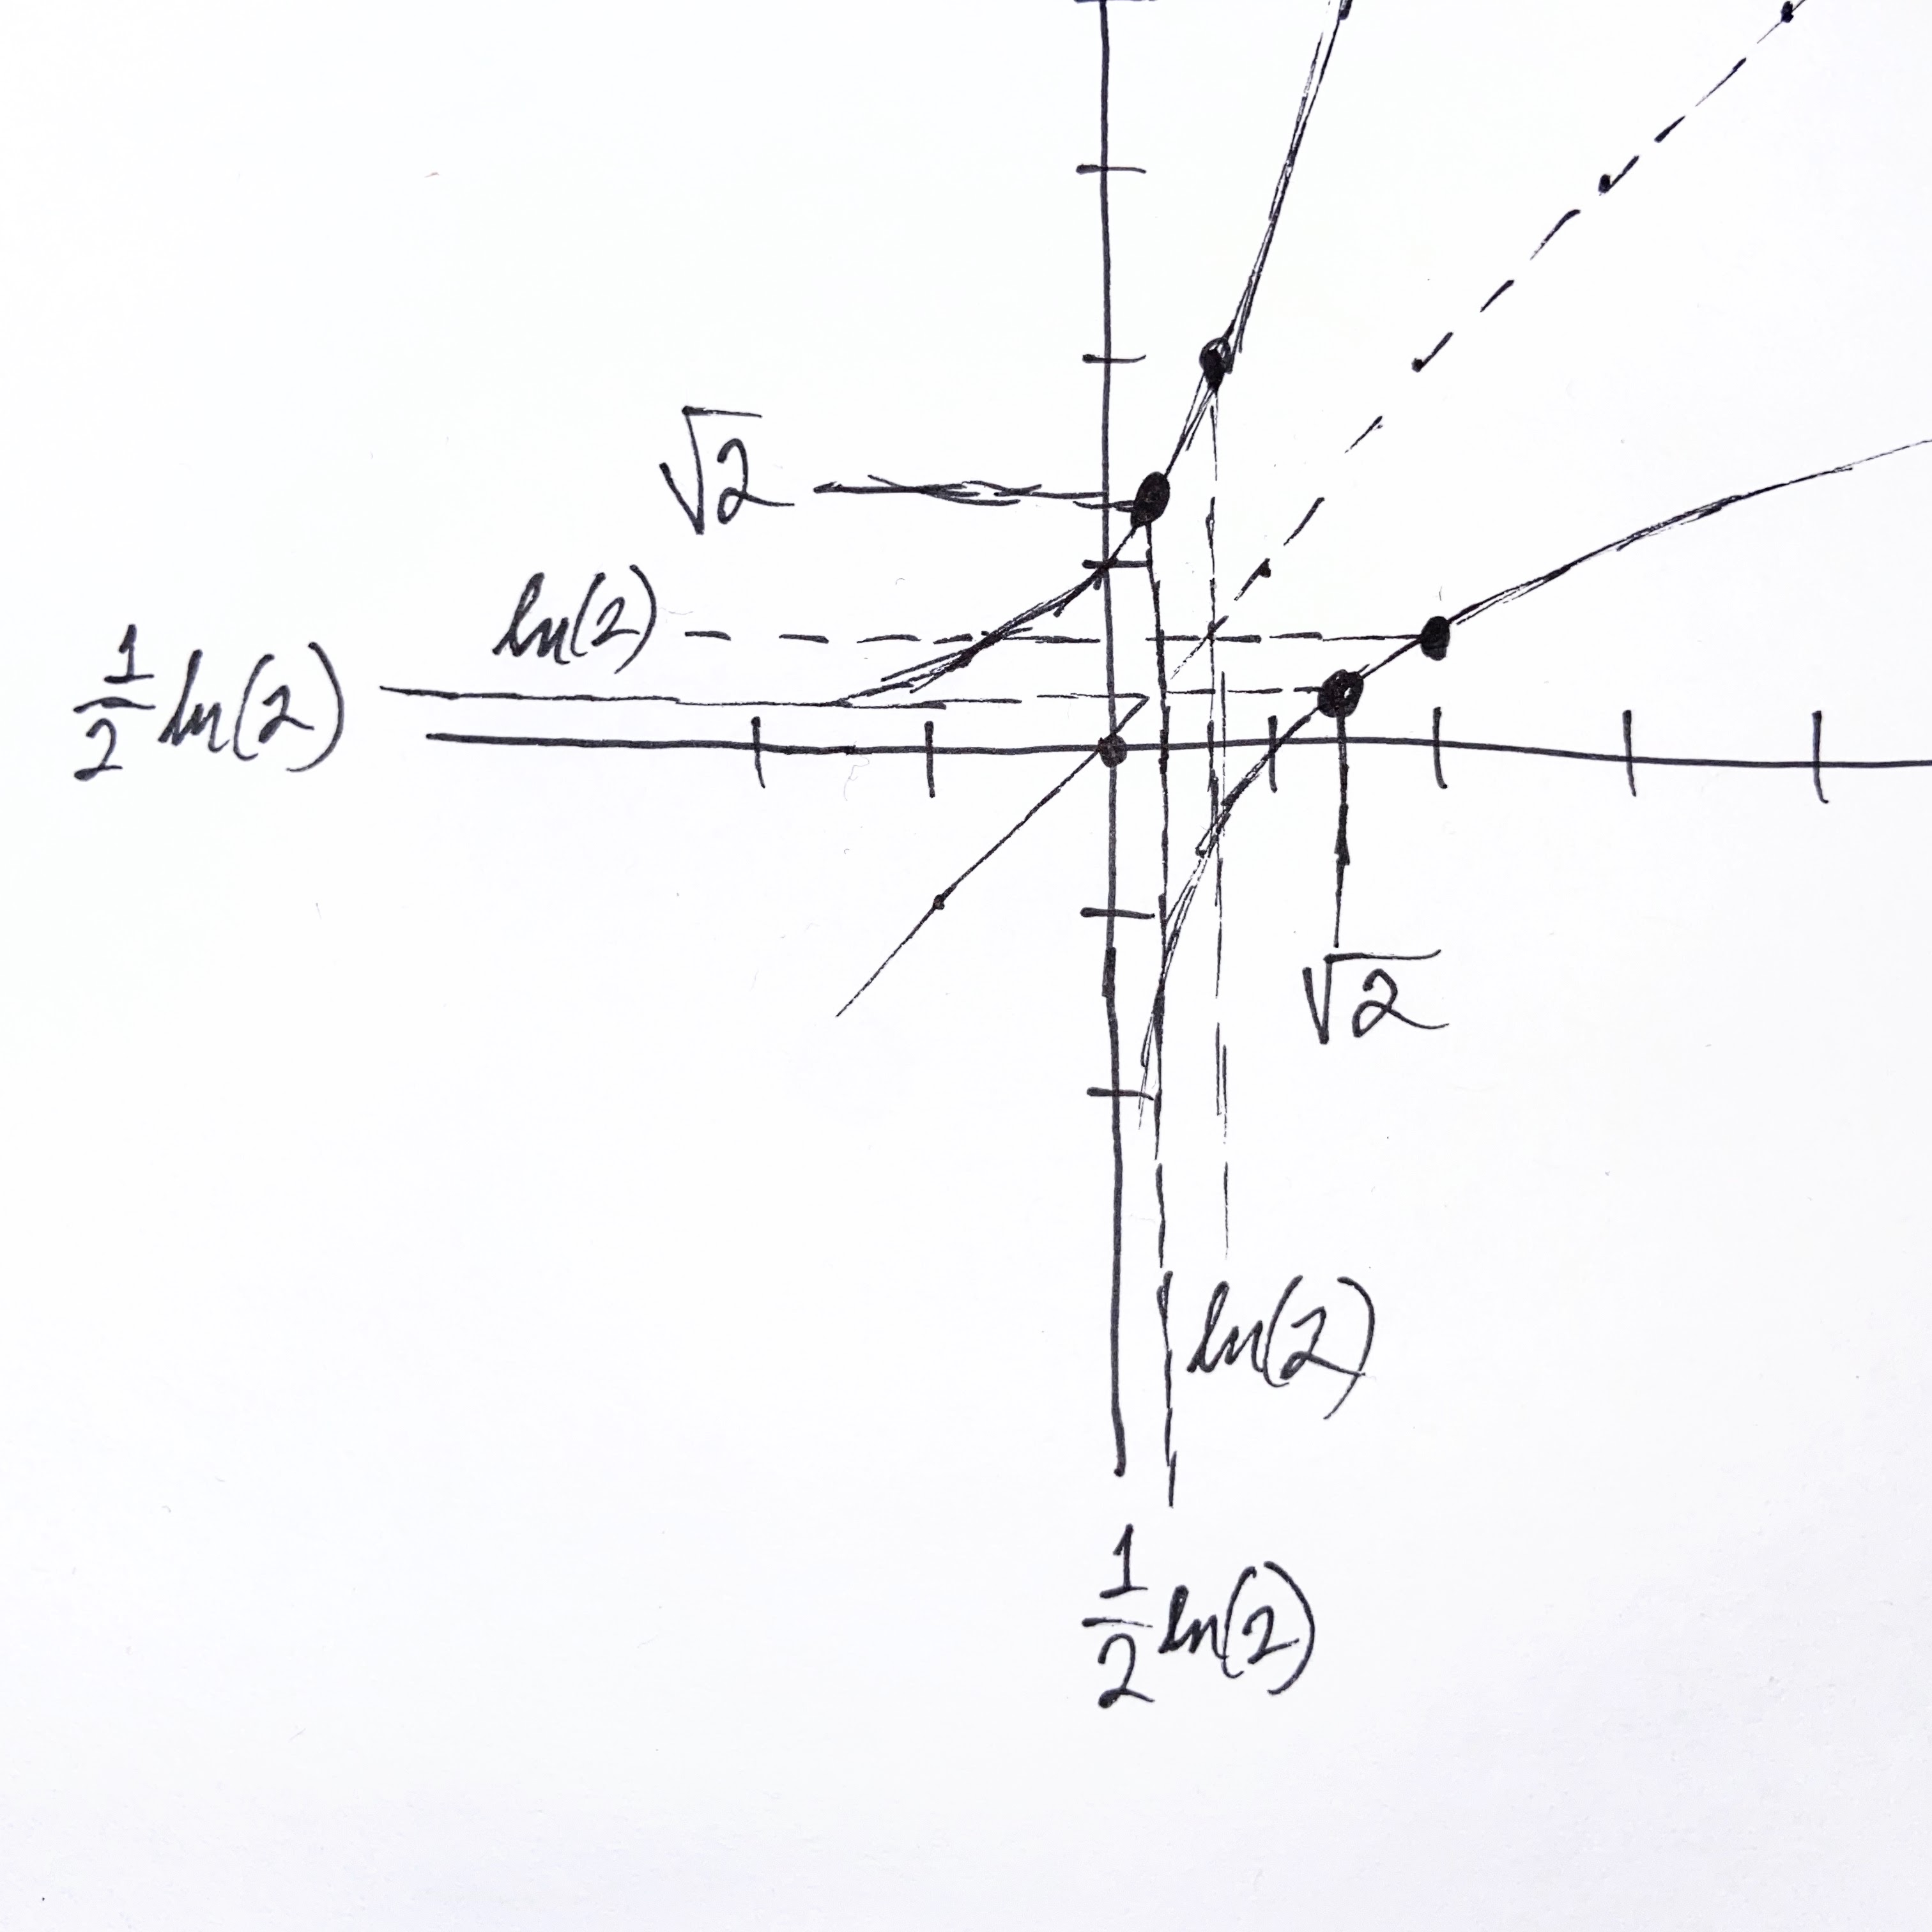 √2
ln(2)
1/2 ln(2)
√2
ln(2)
1/2 ln(2)